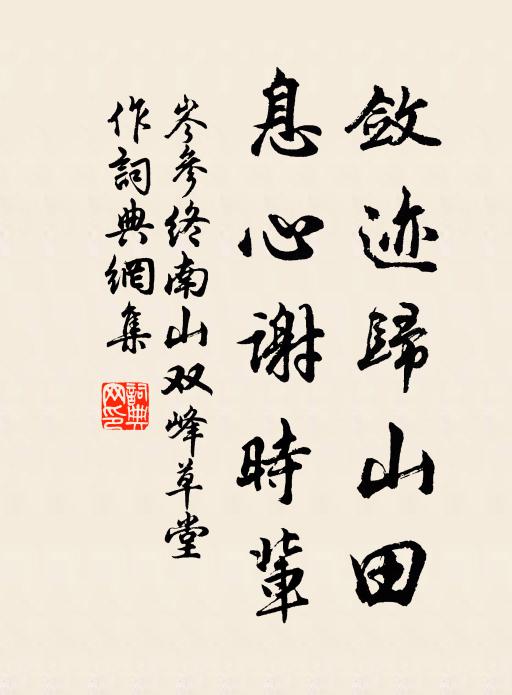 斂迹歸山田
息心謝時輩
岑參终南山双峰草堂
作詞典網集
詞典网印